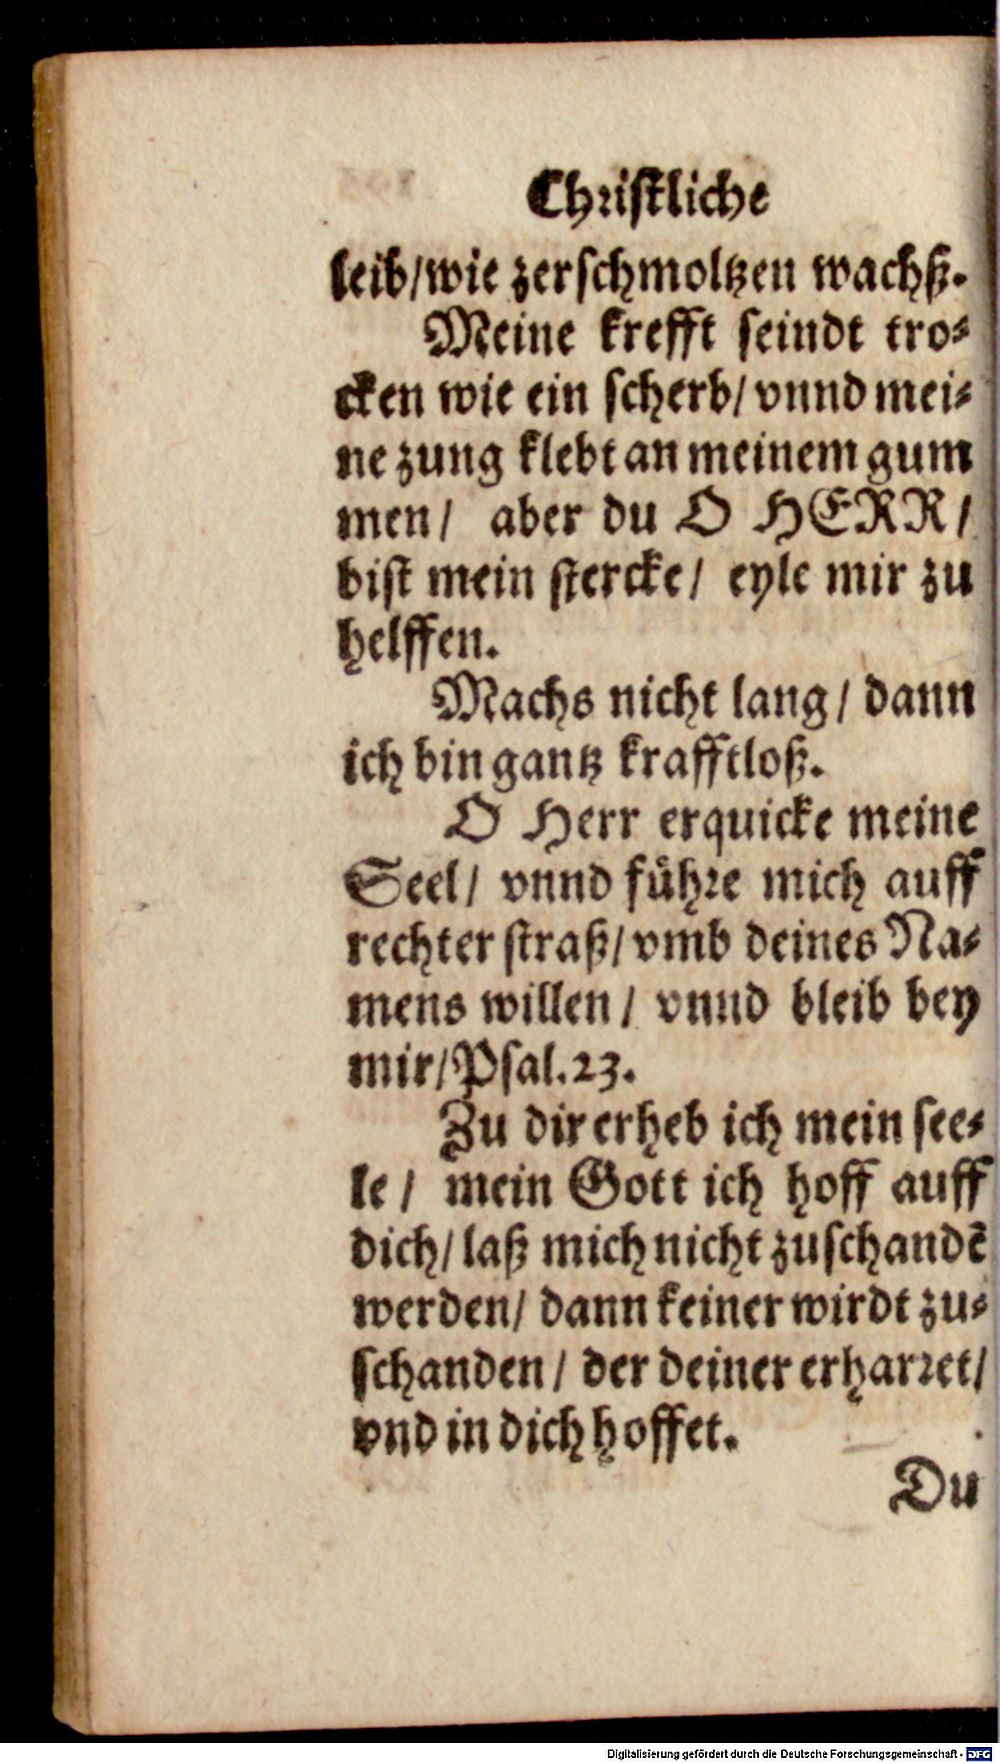 Christliche
leib/wie zerschmoltzen wachß.
Meine krefft seindt tro-
cken wie ein scherb/ vnnd mei-
ne zung klebt an meinem gum
men/ aber du O HERR/
bist mein stercke/ eyle mir zu
helffen.
Machs nicht lang/ dann
ich bin gantz krafftloß.
O Herr erquicke meine
Seel/ vnnd führe mich auff
rechter straß/ vmb deines Na-
mens willen/ vnnd bleib bey
mir/Psal.23.
Zu dir erheb ich mein see-
le/ mein Gott ich hoff auff
dich/ laß mich nicht zuschandẽ
werden/ dann keiner wirdt zu-
schanden/ der deiner erharret/
vnd in dich hoffet.
Du
Digitalisierung gefördert durch die Deutsche Forschungsgemeinschaft - DFG